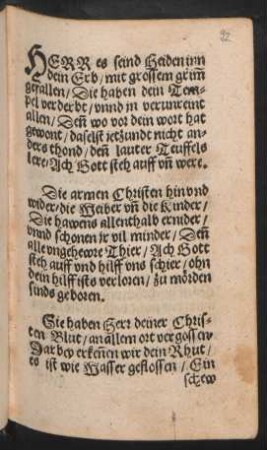 HERR es seind Heiden inn
dein Erb/ mit grossem grim̄
gefallen/ Die haben dein Tem-
pel verderbt/ vnnd in verunreint
allen/ Deñ wo vor dein wort hat
gewont/ daselst jetzundt nicht an-
ders thond/ deñ lauter Teuffels
lere/ Ach Gott steh auff vñ were.
Die armen Christen hin vnd
wider/ die Weiber vñ die Kinder/
Die hawens allenthalb ernider/
vnnd schonen jr vil minder/ Deñ
alle vngehewre Thier/ Ach Gott
steh auff vnd hilff vns schier/ ohn
dein hilff ists verloren/ zu mörden
sinds geboren.
Sie haben Herr deiner Chris-
ten Blut/ an allem ort vergossen/
Darbey erkeñen wir dein Rhut/
es ist wie Wasser geflossen/ Ein
schew